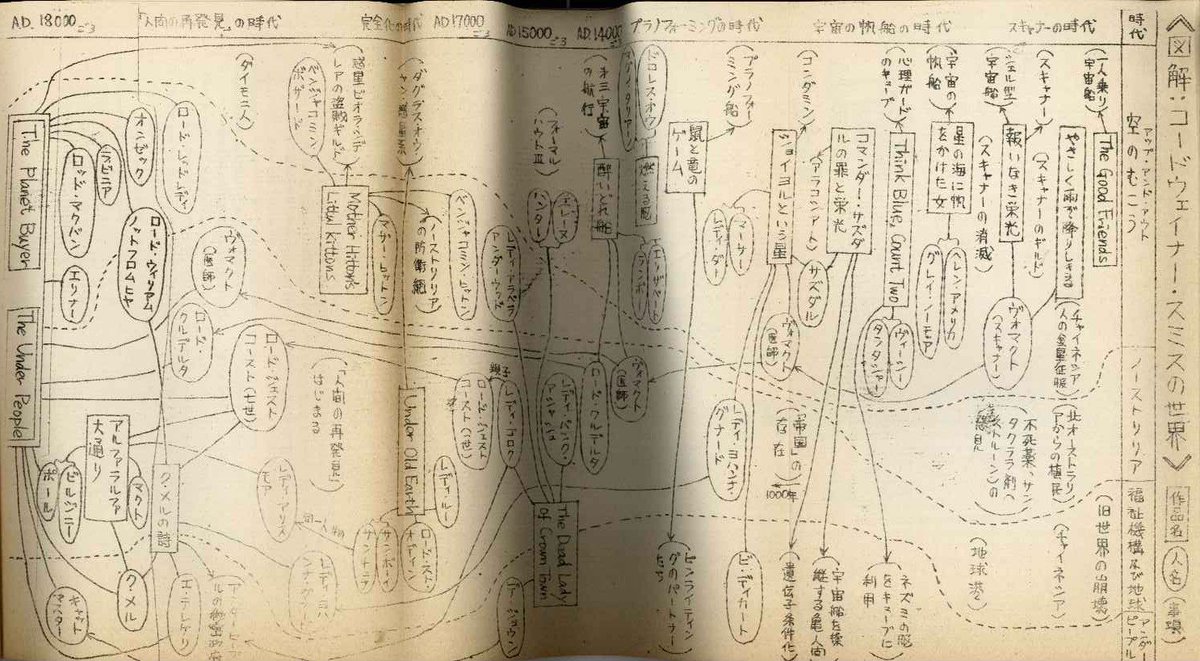 《図解：コードウェイナー・スミスの世界》
時代
アウプ・アンド・アウト
空のむこう
ノーストリリア
福祉機構及び地球
アンダーピープル
作品名
人名
(事項)
スキャナーの時代
宇宙の帆船の時代
プラノフォーミングの時代
AD.14000ごろ
AD.15000ごろ
AD.17000ごろ
完全化の時代
「人間の再発見」の時代
AD.18000ごろ
(一人乗り宇宙船)
The Good Friends
(スキャナー)
やさしく雨が降りしきる
(チャイネシア人の金星征服)
(スキャナーのギルド)
シェル型宇宙船
報いなき栄光
ヴォマクト
(スキャナー)
(スキャナーの消滅)
(宇宙の帆船)
星の海に帆をかけた女
ヘレン・アメリカ
グレイ・ノーモア
(心理ガードのキューブ)
Think Blue, Count Two
ヴィーシー
タンタジャー
コマンダー・サズダルの罪と栄光
(アラコシアトン)
サズダル
(コンダミン)
ショイヨルという星
マーサー
レディ・ダー
ヴォマクト
(医師)
(プラノフォーミング船)
鼠と竜のゲーム
燃える脳
ドロレスオウ
マグノ・タリアーノ
(オ三宇宙の航行)
酔いどれ船
エリザベート
ランボー
ヴォマクト
(医師)
ロード・クルデルタ
(フォーマルハウトⅢ)
エレーヌ
ハンター
レディ・パンク・アシャシュ
The Dead Lady of Crown Town
レディ・アラベラ・アンダーウッド
レディ・ゴロク
親子
ロード・ジェストコースト(一世)
ド・ジョウン
(北オーストラリアからの植民)
(不死薬、サンタクララ剤(ストルーン)の発見)
(「帝国」の存在)
1000年
レディ・ヨハンナ・グナード
(旧世界の崩壊)
(チャイネシア)
(地球港)
(ネズミの脳をキューブに利用)
(宇宙船を操縦する亀人間)
(遺伝子条件化)
ビ・ディカート
(ピンライティングのパートナー)
(ダグラスオウヤン惑星系)
(ノーストリリアの防衛網)
ベンジャコミン・ボザート
(惑星ビオラ・シデレアの盗賊ギルド)
Mother Hitton's Litty Kittons
マザー・ヒットン
(ダイモニ人)
Under Old Earth
レディ・ルー
ロード・スト・オーディン
サンボーイ
サントゥナ
同一人物
レディ・アリス・モア
(「人間の再発見」はじまる)
ロード・レッドレディ
オンセック
ラビニア
ロッド・マクバン
The Planet Buyer
ロード・ウィリアム・ノットフロムヒヤ
エリナー
ヴォマクト
(医師)
ロード・クルデルタ
ロード・ジェストコースト(七世)
The Under People
アルファラルファ大通り
マクト
ビルジニー
ポール
ク・メルの詩
ク・メル
エ・テレケリ